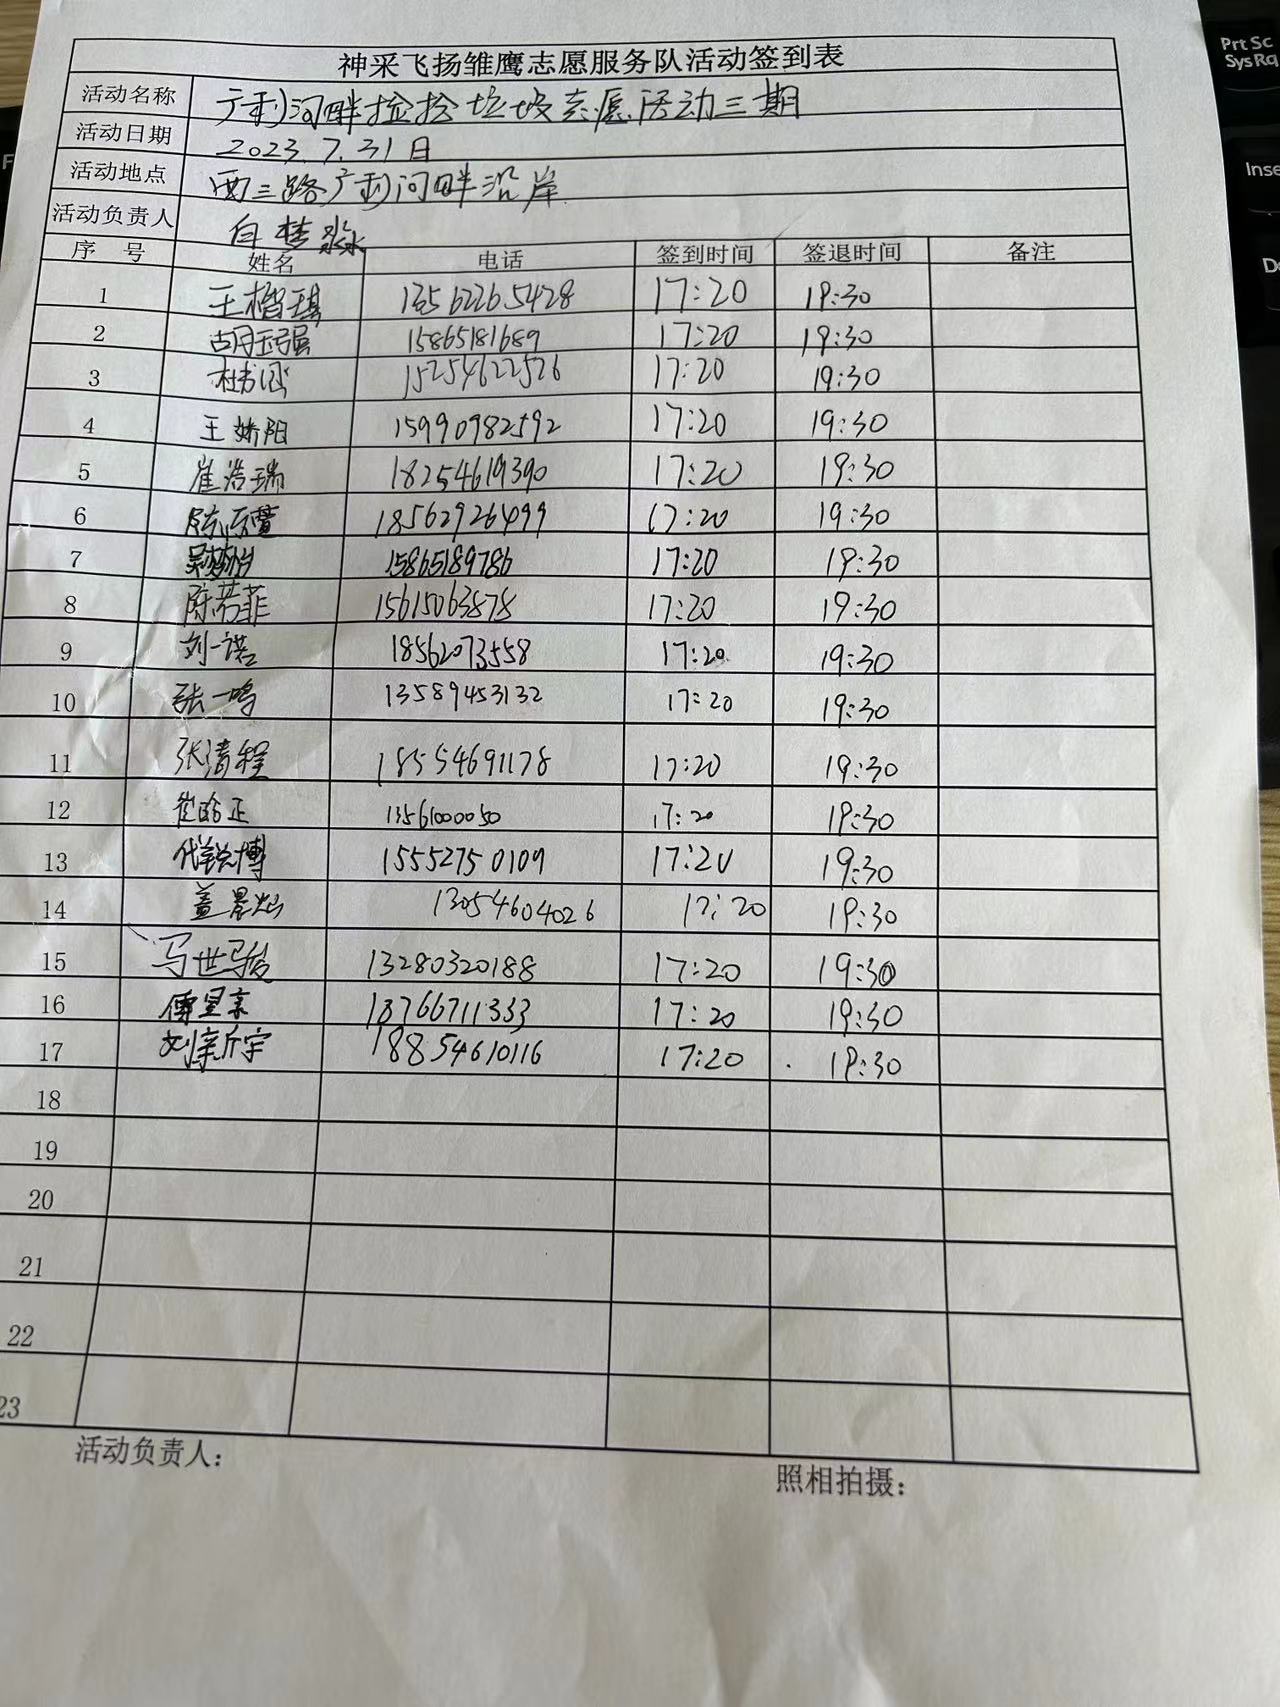 神采飞扬雏鹰志愿服务队活动签到表
活动名称 广利河畔捡拾垃圾志愿活动三期
活动日期 2023.7.31日
活动地点 西三路广利河畔沿岸
活动负责人 白梦淼
序号 姓名 电话 签到时间 签退时间 备注
1 王楷琪 13562265428 17:20 19:30
2 胡玉强 15865181689 17:20 19:30
3 杜书涵 15254622526 17:20 19:30
4 王娇阳 15990982592 17:20 19:30
5 崔浩瑞 18254619390 17:20 19:30
6 18562926499 17:20 19:30
7 吴梦怡 15865189786 17:20 19:30
8 陈若菲 15615063878 17:20 19:30
9 刘一诺 18562073558 17:20 19:30
10 张一鸣 13589453132 17:20 19:30
11 张清程 18554691178 17:20 19:30
12 崔皓正 1356100050 17:20 19:30
13 代锐博 15552750109 17:20 19:30
14 盖星灿 13054604026 17:20 19:30
15 马世骏 13280320188 17:20 19:30
16 傅呈亲 18766711333 17:20 19:30
17 刘梓宇 18854610116 17:20 19:30
18
19
20
21
22
23
活动负责人：
照相拍摄：
Prt Sc
Sys Rq
Inse